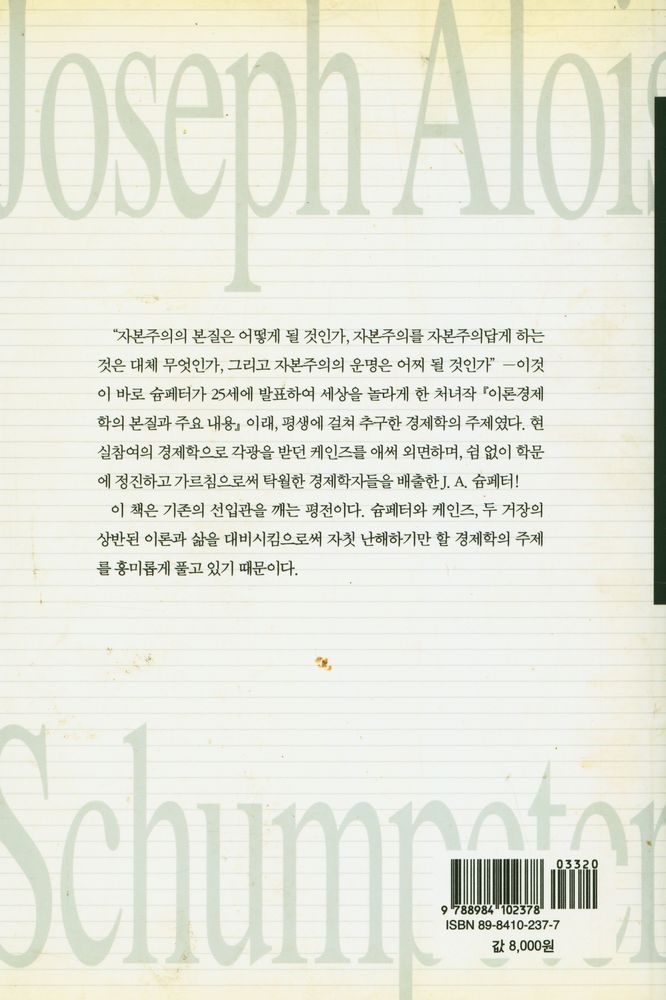 Joseph Alois
“자본주의의 본질은 어떻게 될 것인가, 자본주의를 자본주의답게 하는
것은 대체 무엇인가, 그리고 자본주의의 운명은 어찌 될 것인가” —이것
이 바로 슘페터가 25세에 발표하여 세상을 놀라게 한 처녀작 『이론경제
학의 본질과 주요 내용』 이래, 평생에 걸쳐 추구한 경제학의 주제였다. 현
실참여의 경제학으로 각광을 받던 케인즈를 애써 외면하며, 쉼 없이 학문
에 정진하고 가르침으로써 탁월한 경제학자들을 배출한 J. A. 슘페터!
이 책은 기존의 선입관을 깨는 평전이다. 슘페터와 케인즈, 두 거장의
상반된 이론과 삶을 대비시킴으로써 자칫 난해하기만 할 경제학의 주제
를 흥미롭게 풀고 있기 때문이다.
Schumpeter
03320
9 788984 102378
ISBN 89-8410-237-7
값 8,000원